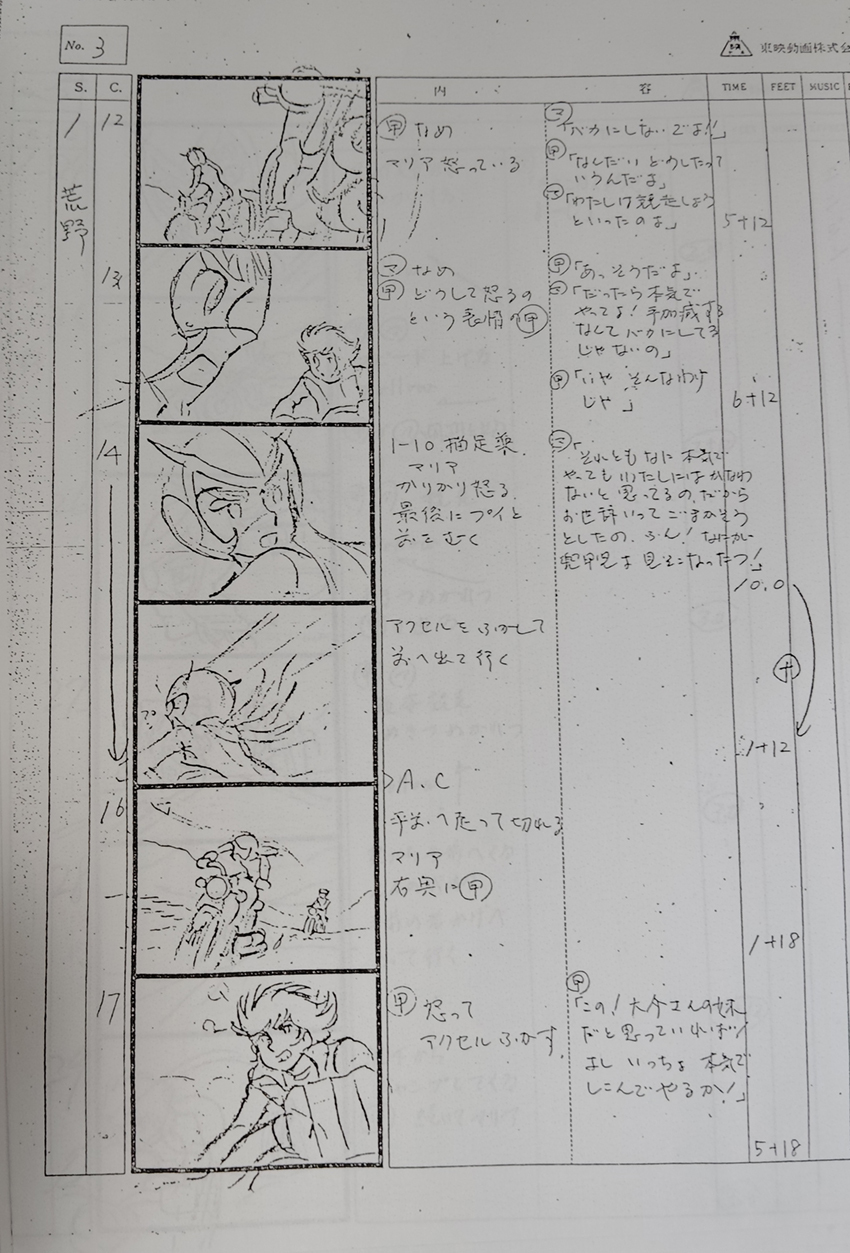 No. 3
東映動画株式会
S. C. 内 容 TIME FEET MUSIC
1 荒野
12
甲 なめ
マリア 怒っている
マ「バカにしないでよ!!」
甲「なんだい どうしたって
いうんだよ」
マ「わたしは競走しよう
といったのよ」
5+12
13
マ なめ
甲 どうして怒るの
という表情の甲
甲「あっそうだよ」
マ「だったら本気で
やってよ! 手加減する
なんて バカにしてる
じゃないの」
甲「いや そんなわけ
じゃ」
6+12
14
1-10
マリア
かりかり怒る
最後にプイと
前をむく
マ「それともなに 本気で
やっても わたしにはかなわ
ないと思ってるの、だから
お世辞いってごまかそう
としたの、ふん! なにが
兜甲児よ 見そこなったワ!」
10.0
アクセルをふかして
前へ出て行く
+
1+12
A.C
16
手前へ走って切れる
マリア
右奥に甲
1+18
17
甲 怒って
アクセルふかす
甲「この! 大介さんの妹
だと思っていれば!
よし いっちょ 本気で
しこんでやるか!」
5+18